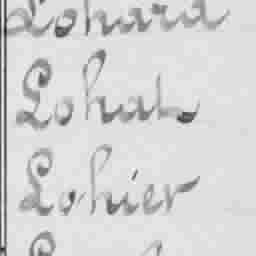 Lohard
Lohat
Lohier